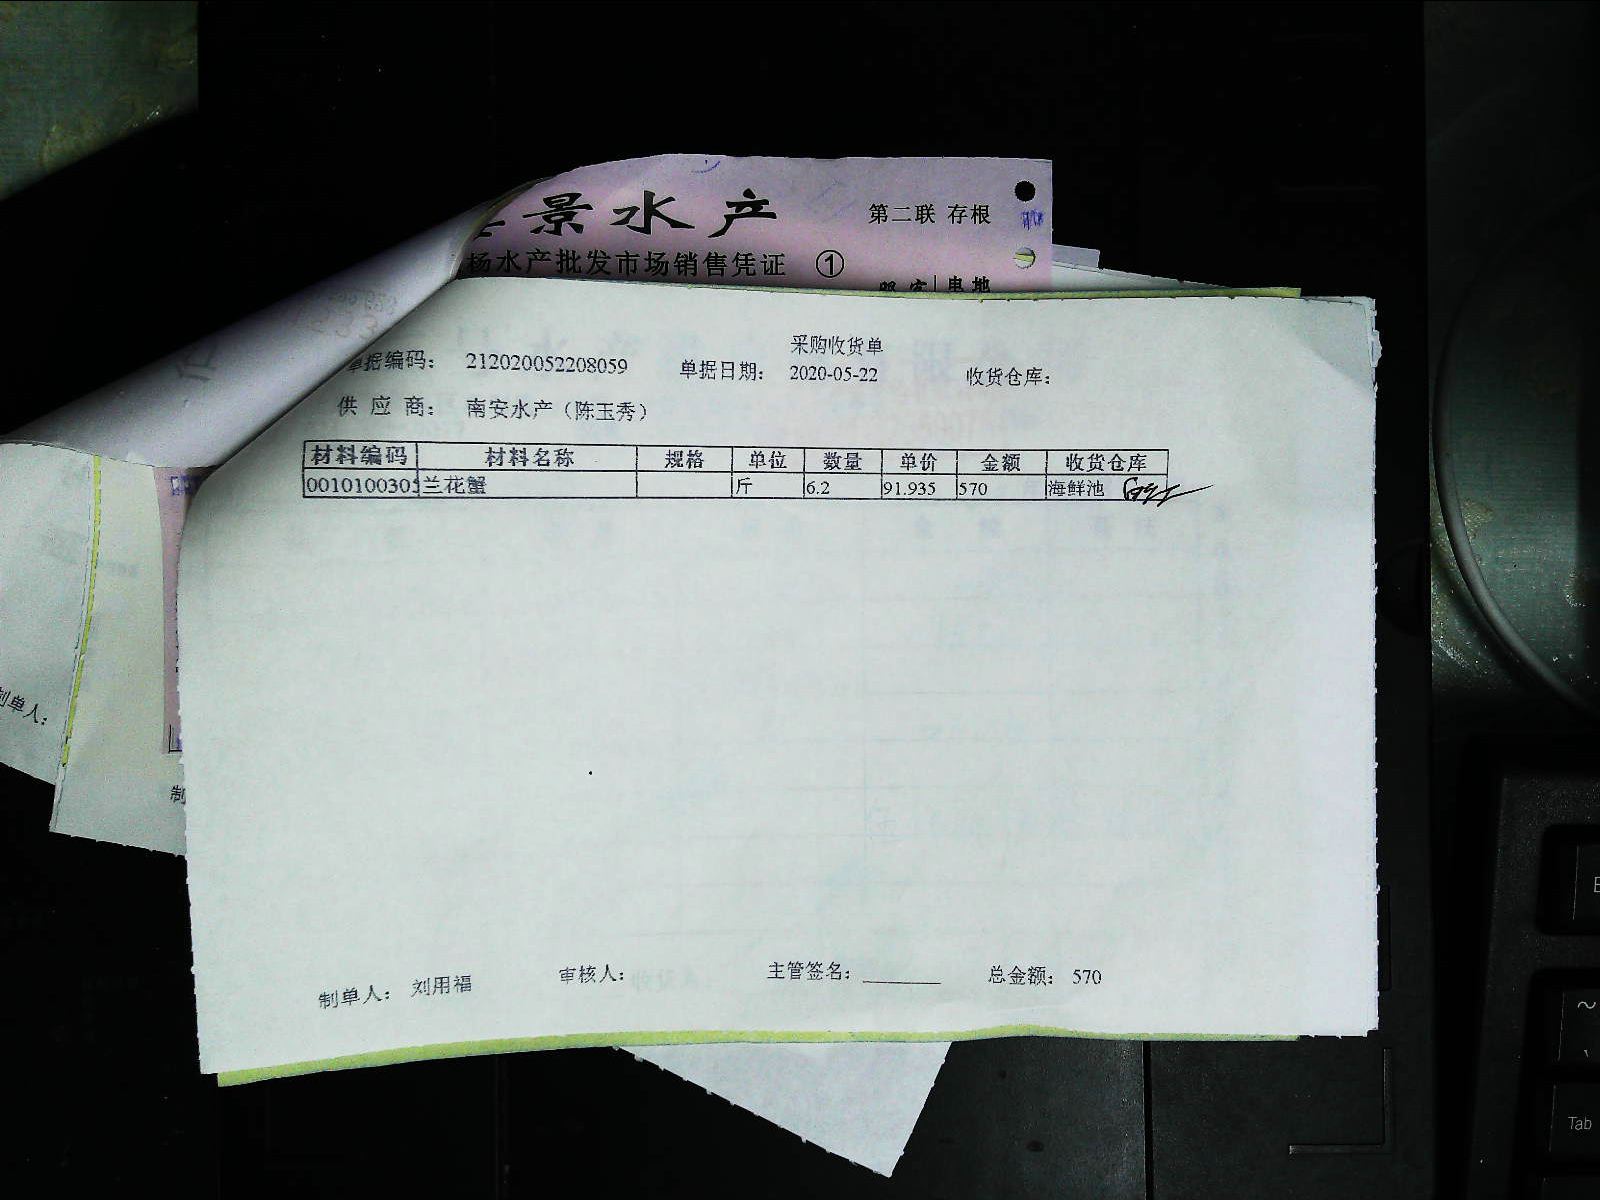 景水产 第二联 存根
杨水产批发市场销售凭证 ①
采购收货单
单据编码： 212020052208059 单据日期： 2020-05-22 收货仓库：
供 应 商： 南安水产（陈玉秀）
材料编码 材料名称 规格 单位 数量 单价 金额 收货仓库
0010100305 兰花蟹 斤 6.2 91.935 570 海鲜池
制单人：
制
制单人： 刘用福 审核人： 主管签名：________ 总金额： 570
~
Tab